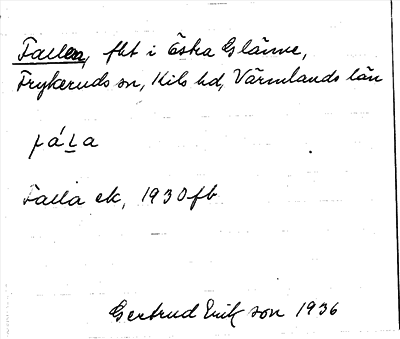 Falla, fht i Östra Glänne,
Frykeruds sn, Kils hd, Värmlands län
fáḶa
Falla ek, 1930 fb
Gertrud Erikson 1936